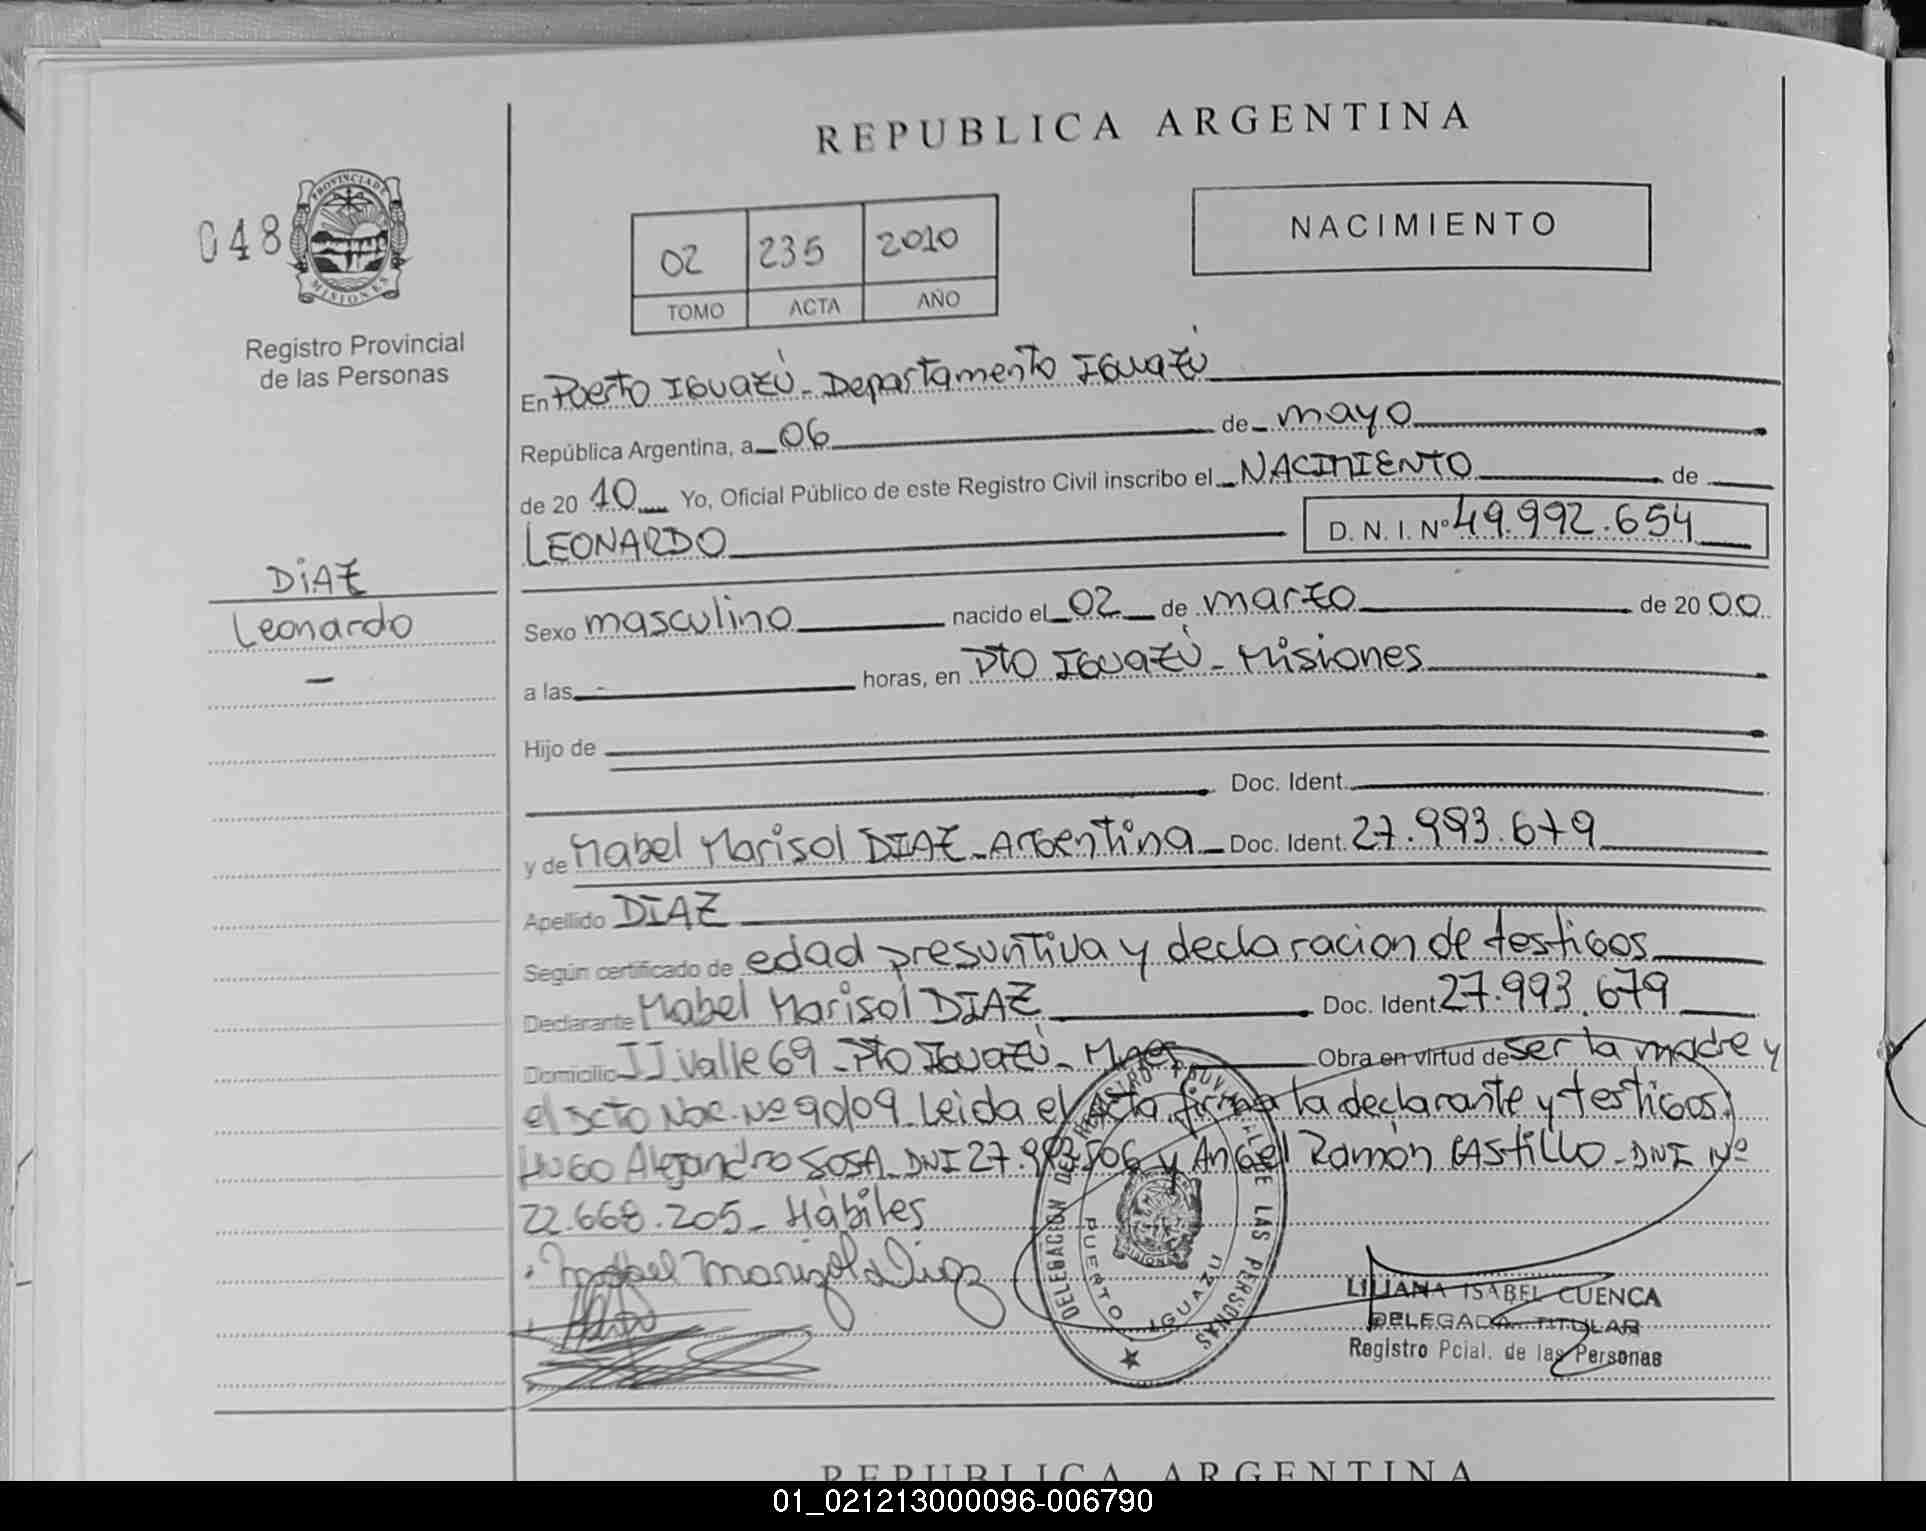 REPUBLICA ARGENTINA
048
PROVINCIA DE
MISIONES
Registro Provincial
de las Personas
02 235 2010
TOMO ACTA AÑO
NACIMIENTO
En Puerto Iguazú - Departamento Iguazú
República Argentina, a 06 de mayo
de 20 10 Yo, Oficial Público de este Registro Civil inscribo el NACIMIENTO de
LEONARDO D. N. I. Nº 49.992.654
DiAZ
Leonardo
Sexo masculino nacido el 02 de marzo de 20 00
a las - horas, en Pto Iguazú - Misiones
Hijo de
Doc. Ident.
y de Mabel Marisol DIAZ - Argentina Doc. Ident. 27.993.679
Apellido DIAZ
Según certificado de edad presuntiva y declaracion de testigos
Declarante Mabel Marisol DIAZ Doc. Ident. 27.993.679
Domicilio JJ Valle 69 - Pto Iguazú - Mnes Obra en virtud de ser la madre y
el Dcto Nac. Nº 90/09 Leida el Acta firma la declarante y testigos
HUGO Alejandro SOSA - DNI 27. y Angel Ramón CAStiLLo - DNI Nº
22.668.205 - Hábiles
Mabel Marizol Diaz
DELEGACION DEL REGISTRO PROVINCIAL DE LAS PERSONAS
PUERTO IGUAZU
LILIANA ISABEL CUENCA
DELEGADA TITULAR
Registro Pcial. de las Personas
REPUBLICA ARGENTINA
01_021213000096-006790